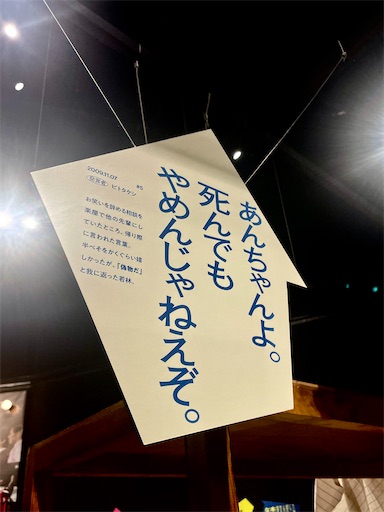 あんちゃんよ。
死んでも
やめんじゃねえぞ。
2009.11.07 #5
投稿者 ビトタケシ
お笑いを辞める相談を
楽屋で他の先輩にし
ていたところ、帰り際
に言われた言葉。
半べそをかくぐらい嬉
しかったが、「偽物だ」
と我に返った若林。